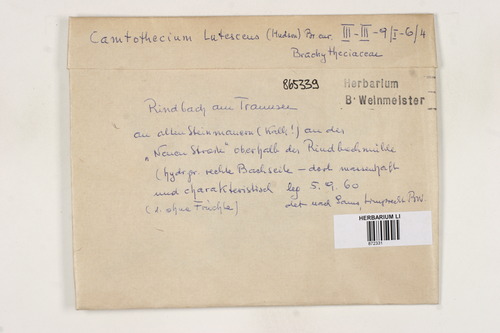 Camtothecium lutescens (Hudson) Br. eur. III-III-9/I-6/4
Brachytheciaceae
865339
Herbarium
B. Weinmeister
Rindbach am Traunsee
an alten Steinmauern (Kalk!) an der
"Neuen Straße" oberhalb der Rindbachmühle
(hydrgr. rechte Bachseite - dort massenhaft
und charakteristisch leg 5. 9. 60
(s. ohne Früchte) det nach Gams, Limpricht
HERBARIUM LI
872331